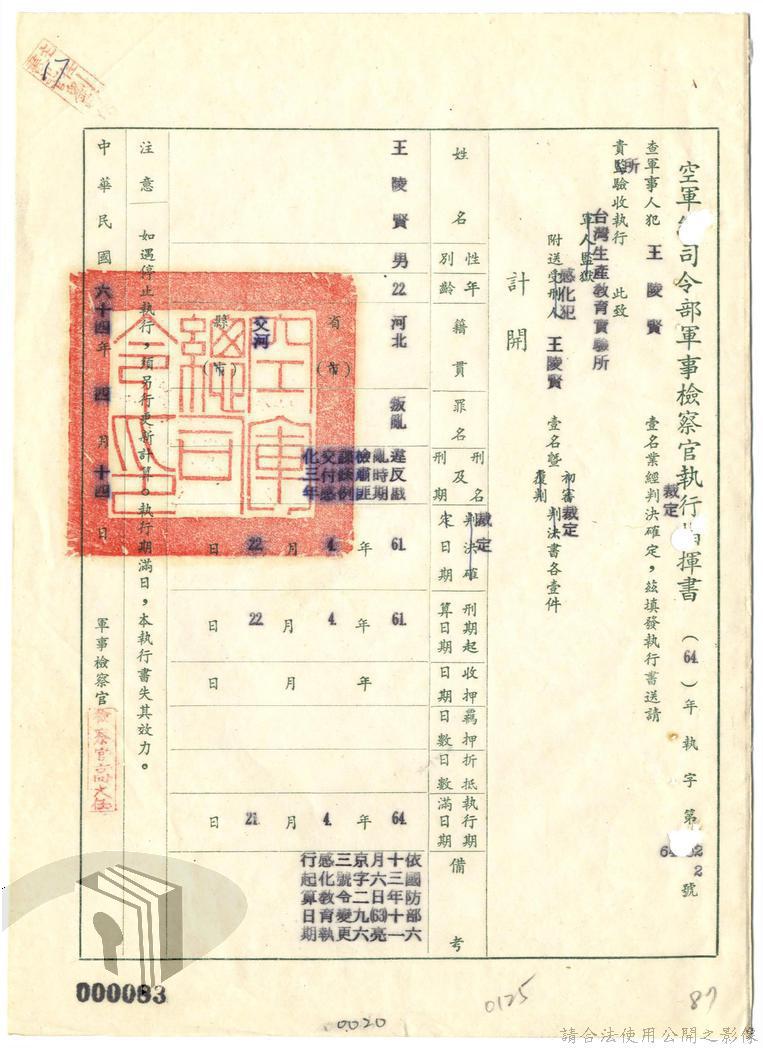 17
空軍司令部軍事檢察官執行指揮書 (64)年執字第 號
查軍事人犯 王陵賢 壹名業經判決確定，茲填發執行書送請
裁定
貴監驗收執行 此致
所
軍人監獄
台灣生產教育實驗所
附送受刑人 王陵賢 壹名暨 初審 覆判 判決書各壹件
感化犯
裁定
計開
姓名
性別
年齡
籍貫
罪名
刑名及刑期
判決確定日期
裁定
刑期起算日期
收押日期
羈押日數
折抵日數
執行期滿日期
備考
王陵賢
男
22
河北省(市)交河縣(市)
叛亂
違反戡
亂時期
檢肅匪
諜條例
交付感
化三年
61.年4.月22.日
61.年4.月22.日
年 月 日
64.年4.月21.日
依國防部六
十三年十一
月六日(63)亮
京字二九六
三號令變更
感化教育執
行起算日期
注意 如遇停止執行，須另行更新計算。執行期滿日，本執行書失其效力。
中華民國六十四年四月十四日 軍事檢察官
空軍總司令印
000083
0020
0125
87
請合法使用公開之影像